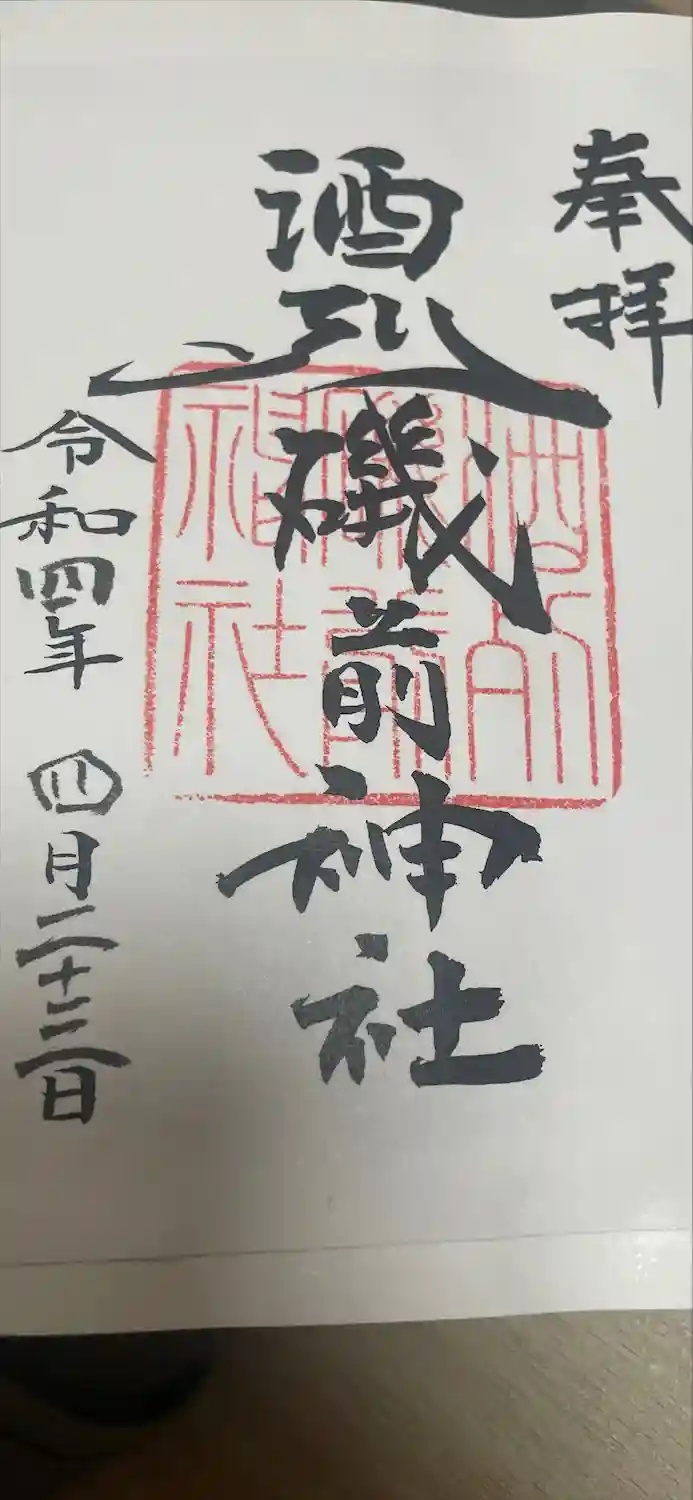 奉拝
酒列磯前神社
酒列
磯前
神社
令和四年 四月二十三日